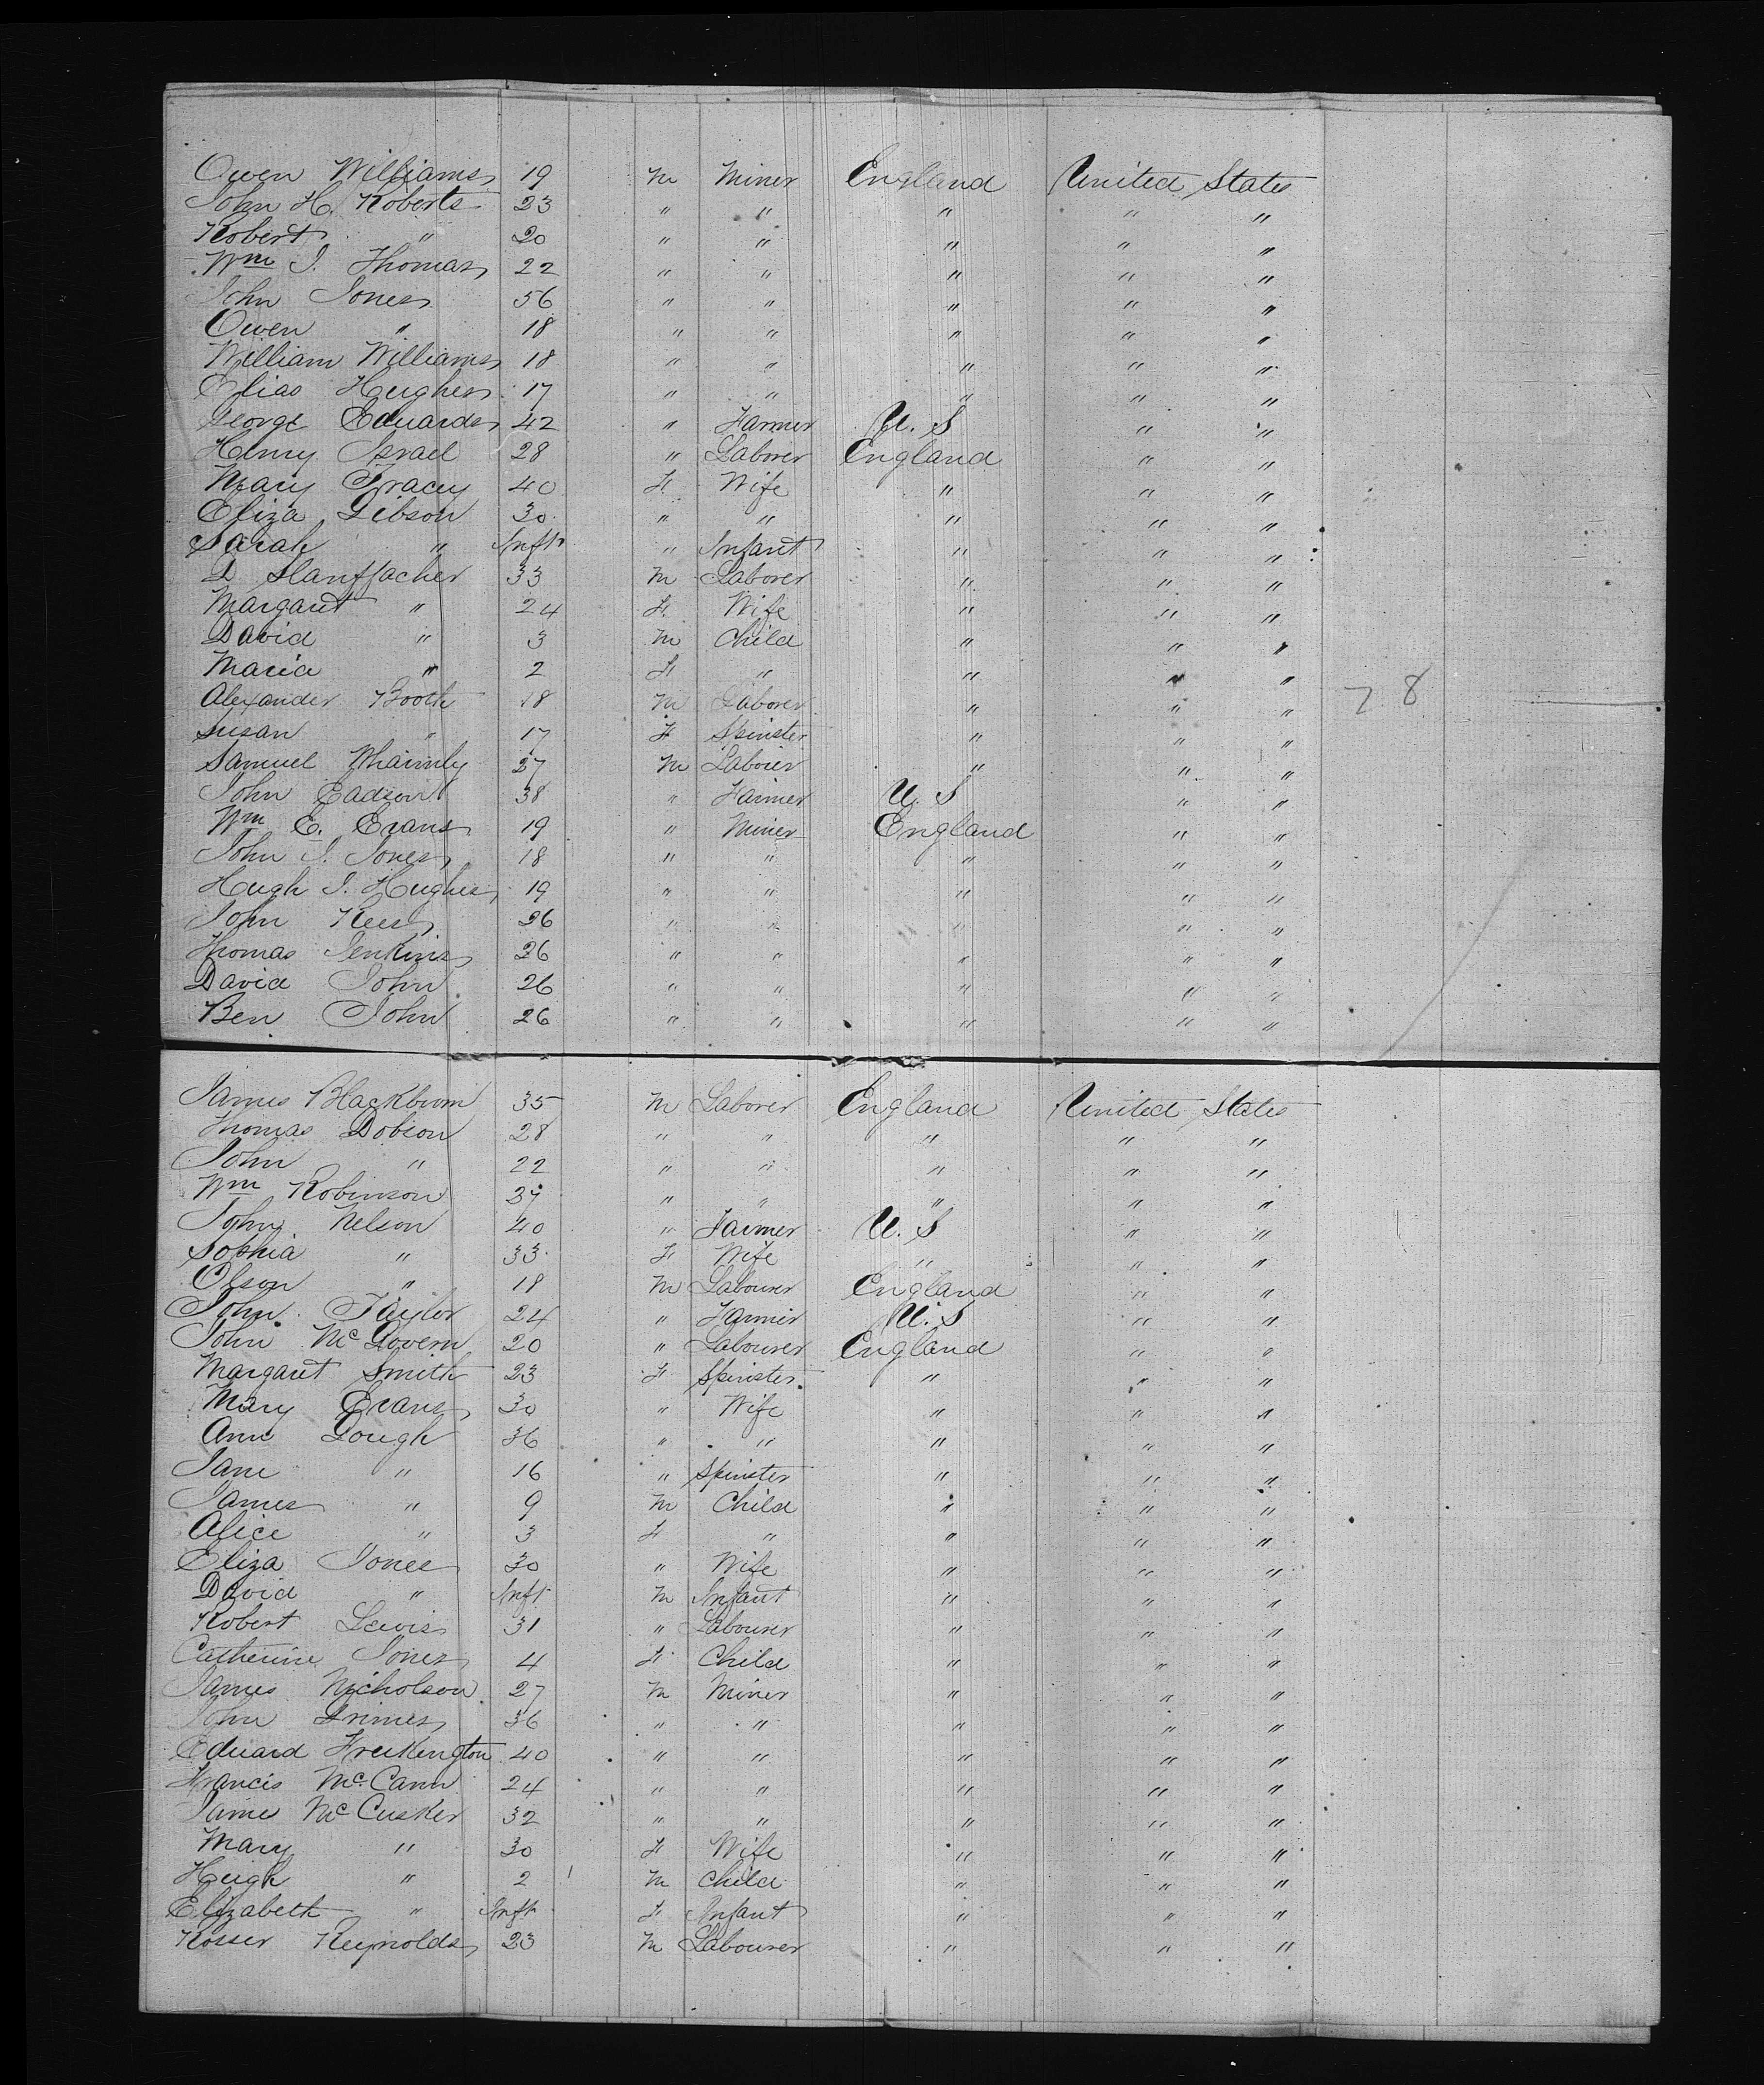 Owen Williams 19 M Miner England United States
John H. Roberts 23 " " " " "
Robert " 20 " " " " "
Wm J. Thomas 22 " " " " "
John Jones 56 " " " " "
Owen " 18 " " " " "
William Williams 18 " " " " "
Elias Hughes 17 " " " " "
George Edwards 42 " Farmer U. S " "
Henry Israel 28 " Laborer England " "
Mary Tracey 40 F Wife " " "
Eliza Gibson 30 " " " " "
Sarah " Inft " Infant " " "
D 33 M Laborer " " "
Margaret " 24 F Wife " " "
David " 3 M Child " " "
Maria " 2 F " " " "
Alexander Booth 18 M Laborer " " "
Susan " 17 F Spinster " " "
Samuel 27 M Laborer " " "
John 38 " Farmer U. S " "
Wm E. Evans 19 " Miner England " "
John J. Jones 18 " " " " "
Hugh J. Hughes 19 " " " " "
John Rees 26 " " " " "
Thomas Jenkins 26 " " " " "
David John 26 " " " " "
Ben John 26 " " " " "
7 8
James Blackburn 35 M Laborer England United States
Thomas Dobson 28 " " " " "
John " 22 " " " " "
Wm Robinson 37 " " " " "
John Nelson 40 " Farmer U. S " "
Sophia " 33 F Wife " " "
Olson " 18 M Labourer England " "
John Taylor 24 " Farmer U. S " "
John McGovern 20 " Labourer England " "
Margaret Smith 23 F Spinster " " "
Mary Evans 30 " Wife " " "
Ann Gough 36 " " " " "
Jane " 16 " Spinster " " "
James " 9 M Child " " "
Alice " 3 F " " " "
Eliza Jones 30 " Wife " " "
David " Inft M Infant " " "
Robert Lewis 31 " Labourer " " "
Catherine Jones 4 F Child " " "
James Nicholson 27 M Miner " " "
John Grimes 36 " " " " "
Edward 40 " " " " "
Francis McCann 24 " " " " "
James McCusker 32 " " " " "
Mary " 30 F Wife " " "
Hugh " 2 M Child " " "
Elizabeth " Inft F Infant " " "
Rosser Reynolds 23 M Labourer " " "